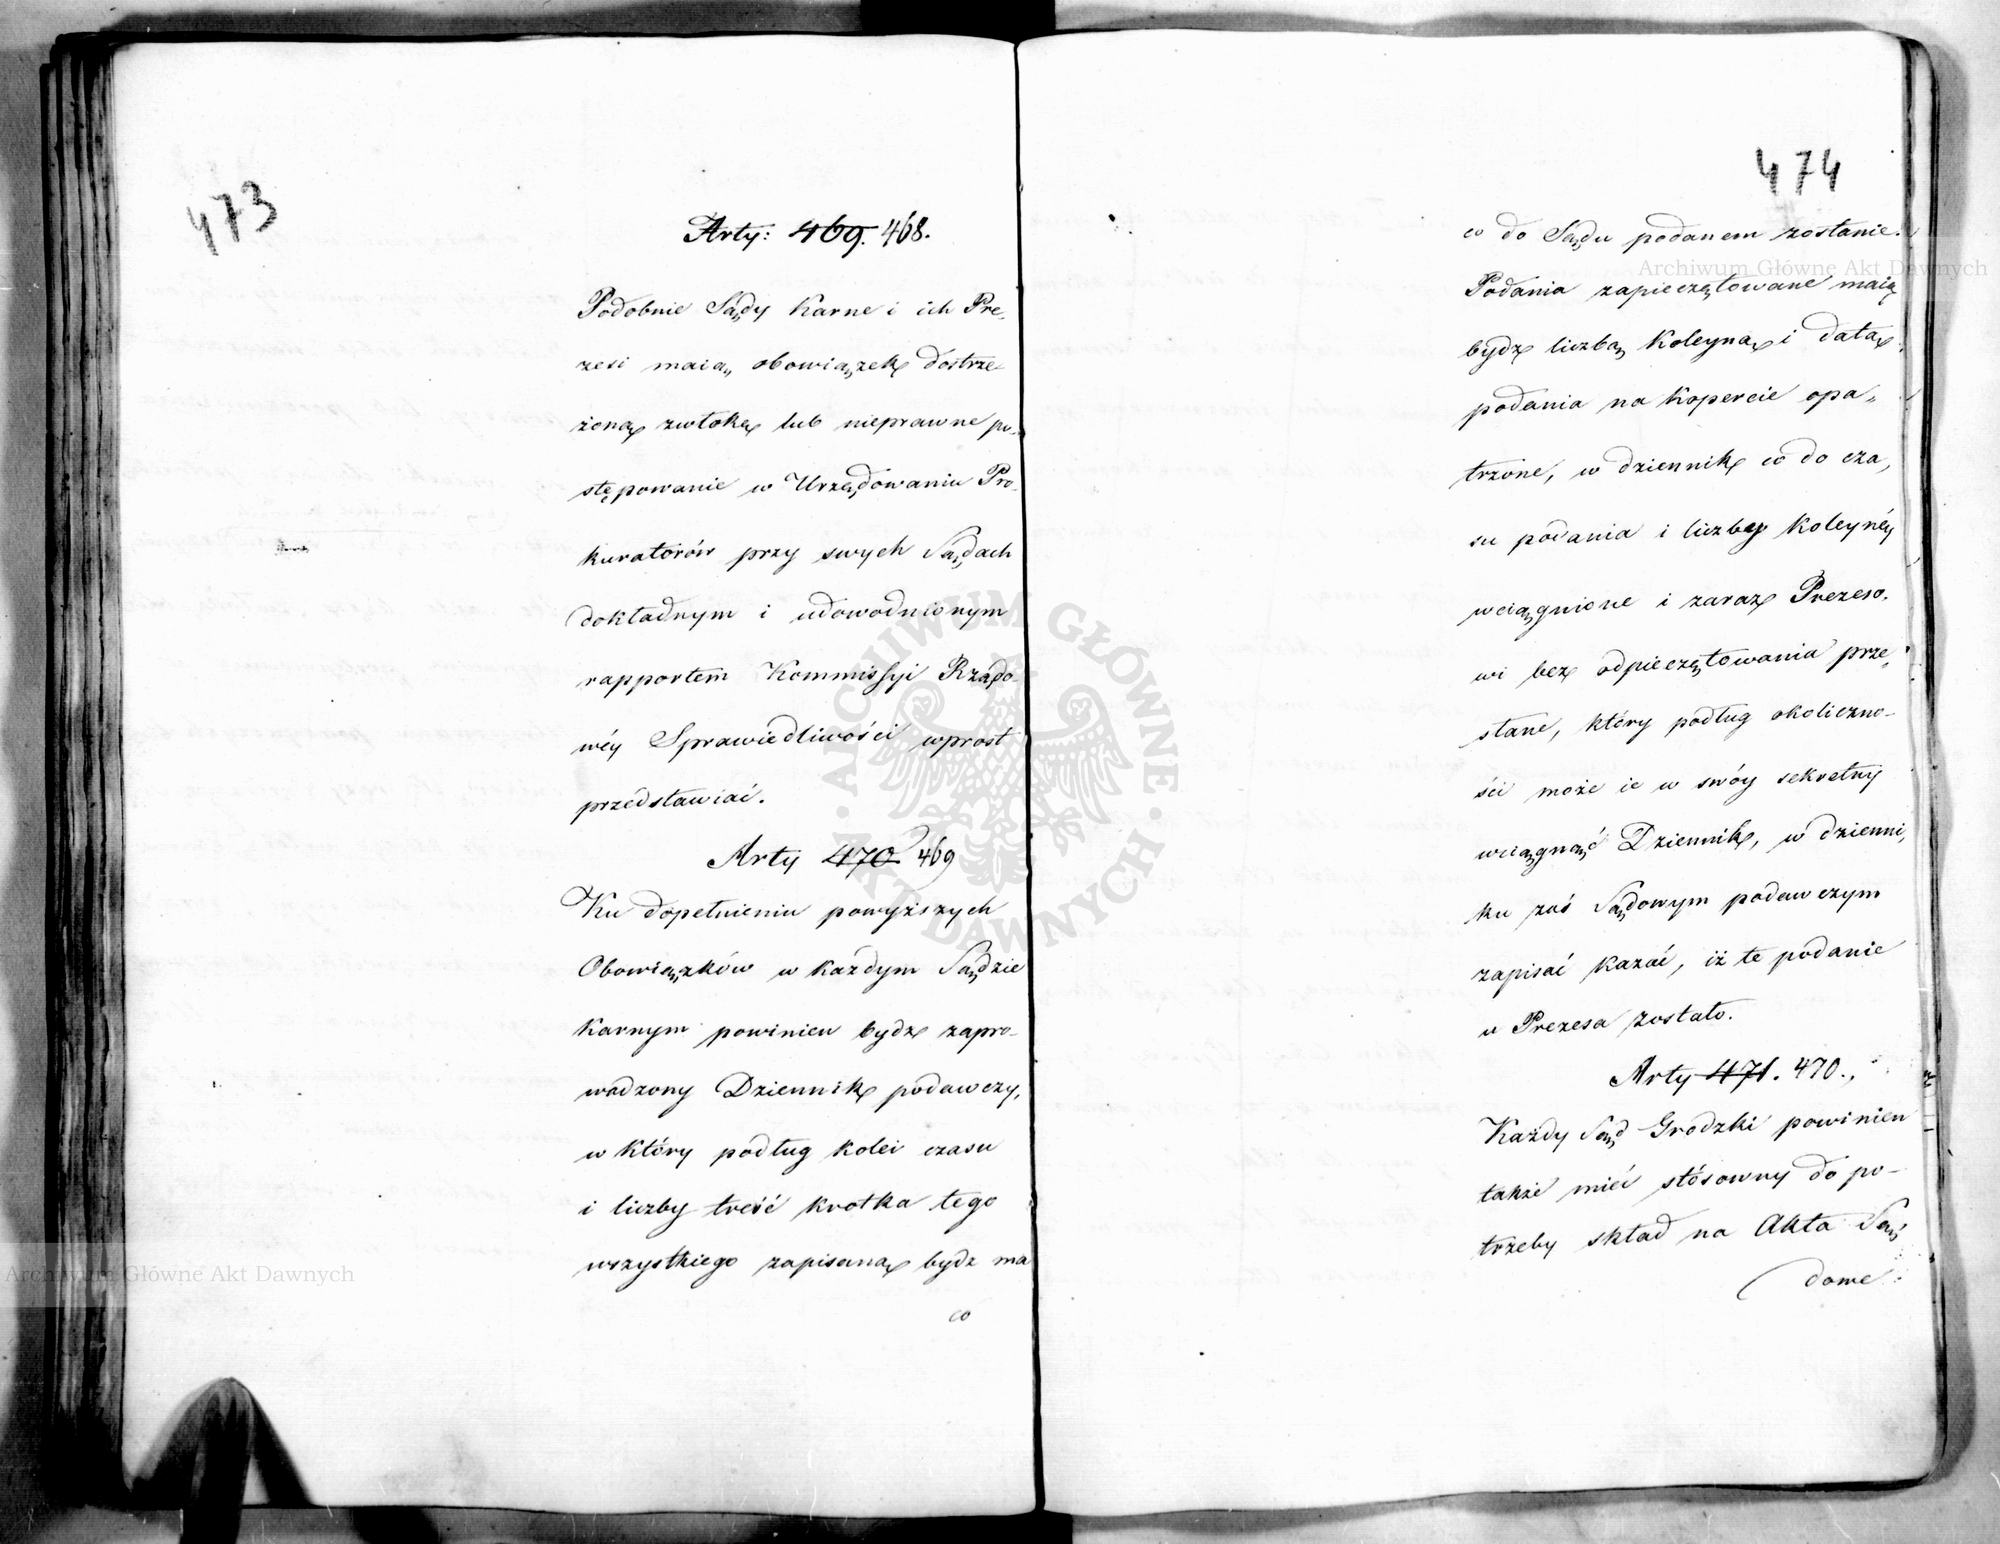 473
Arty: 469. 468.
Podobnie Sądy Karne i ich Pre-
zesi maią obowiązek dostrze-
żoną zwłokę lub nieprawne po-
stępowanie w Urzędowaniu Pro-
kuratorów przy swych Sądach
dokładnym i udowodnionym
rapportem Kommissyi Rządo-
wéy Sprawiedliwości wprost
przedstawiać.
Arty 470 469
Ku dopełnieniu powyższych
Obowiązków w każdym Sądzie
Karnym powinien bydź zapro-
wadzony Dziennik podawczy,
w który podług kolei czasu
i liczby treść krotka tego
wszystkiego zapisaną bydz ma
co
474
co do Sądu podanem zostanie.
Podania zapieczętowane maią
bydź liczbą koleyną i datą
podania na kopercie opa„
trzone, w dziennik co do cza,
su podania i liczby koleynéy
wciągnione i zaraz Prezeso,
wi bez odpieczętowania prze,
słane, który podług okoliczno-
ści może ie w swóy sekretny
wciągnąć Dziennik, w dzienni,
ku zaś Sądowym podawczym
zapisać kazać, iż te podanie
u Prezesa zostało.
Arty 471. 470.
Każdy Sąd Grodzki powinien
także mieć stósowny do po-
trzeby skład na Akta Są,
dowe
Archiwum Główne Akt Dawnych
Archiwum Główne Akt Dawnych
ARCHIWUM GŁÓWNE · AKT DAWNYCH ·